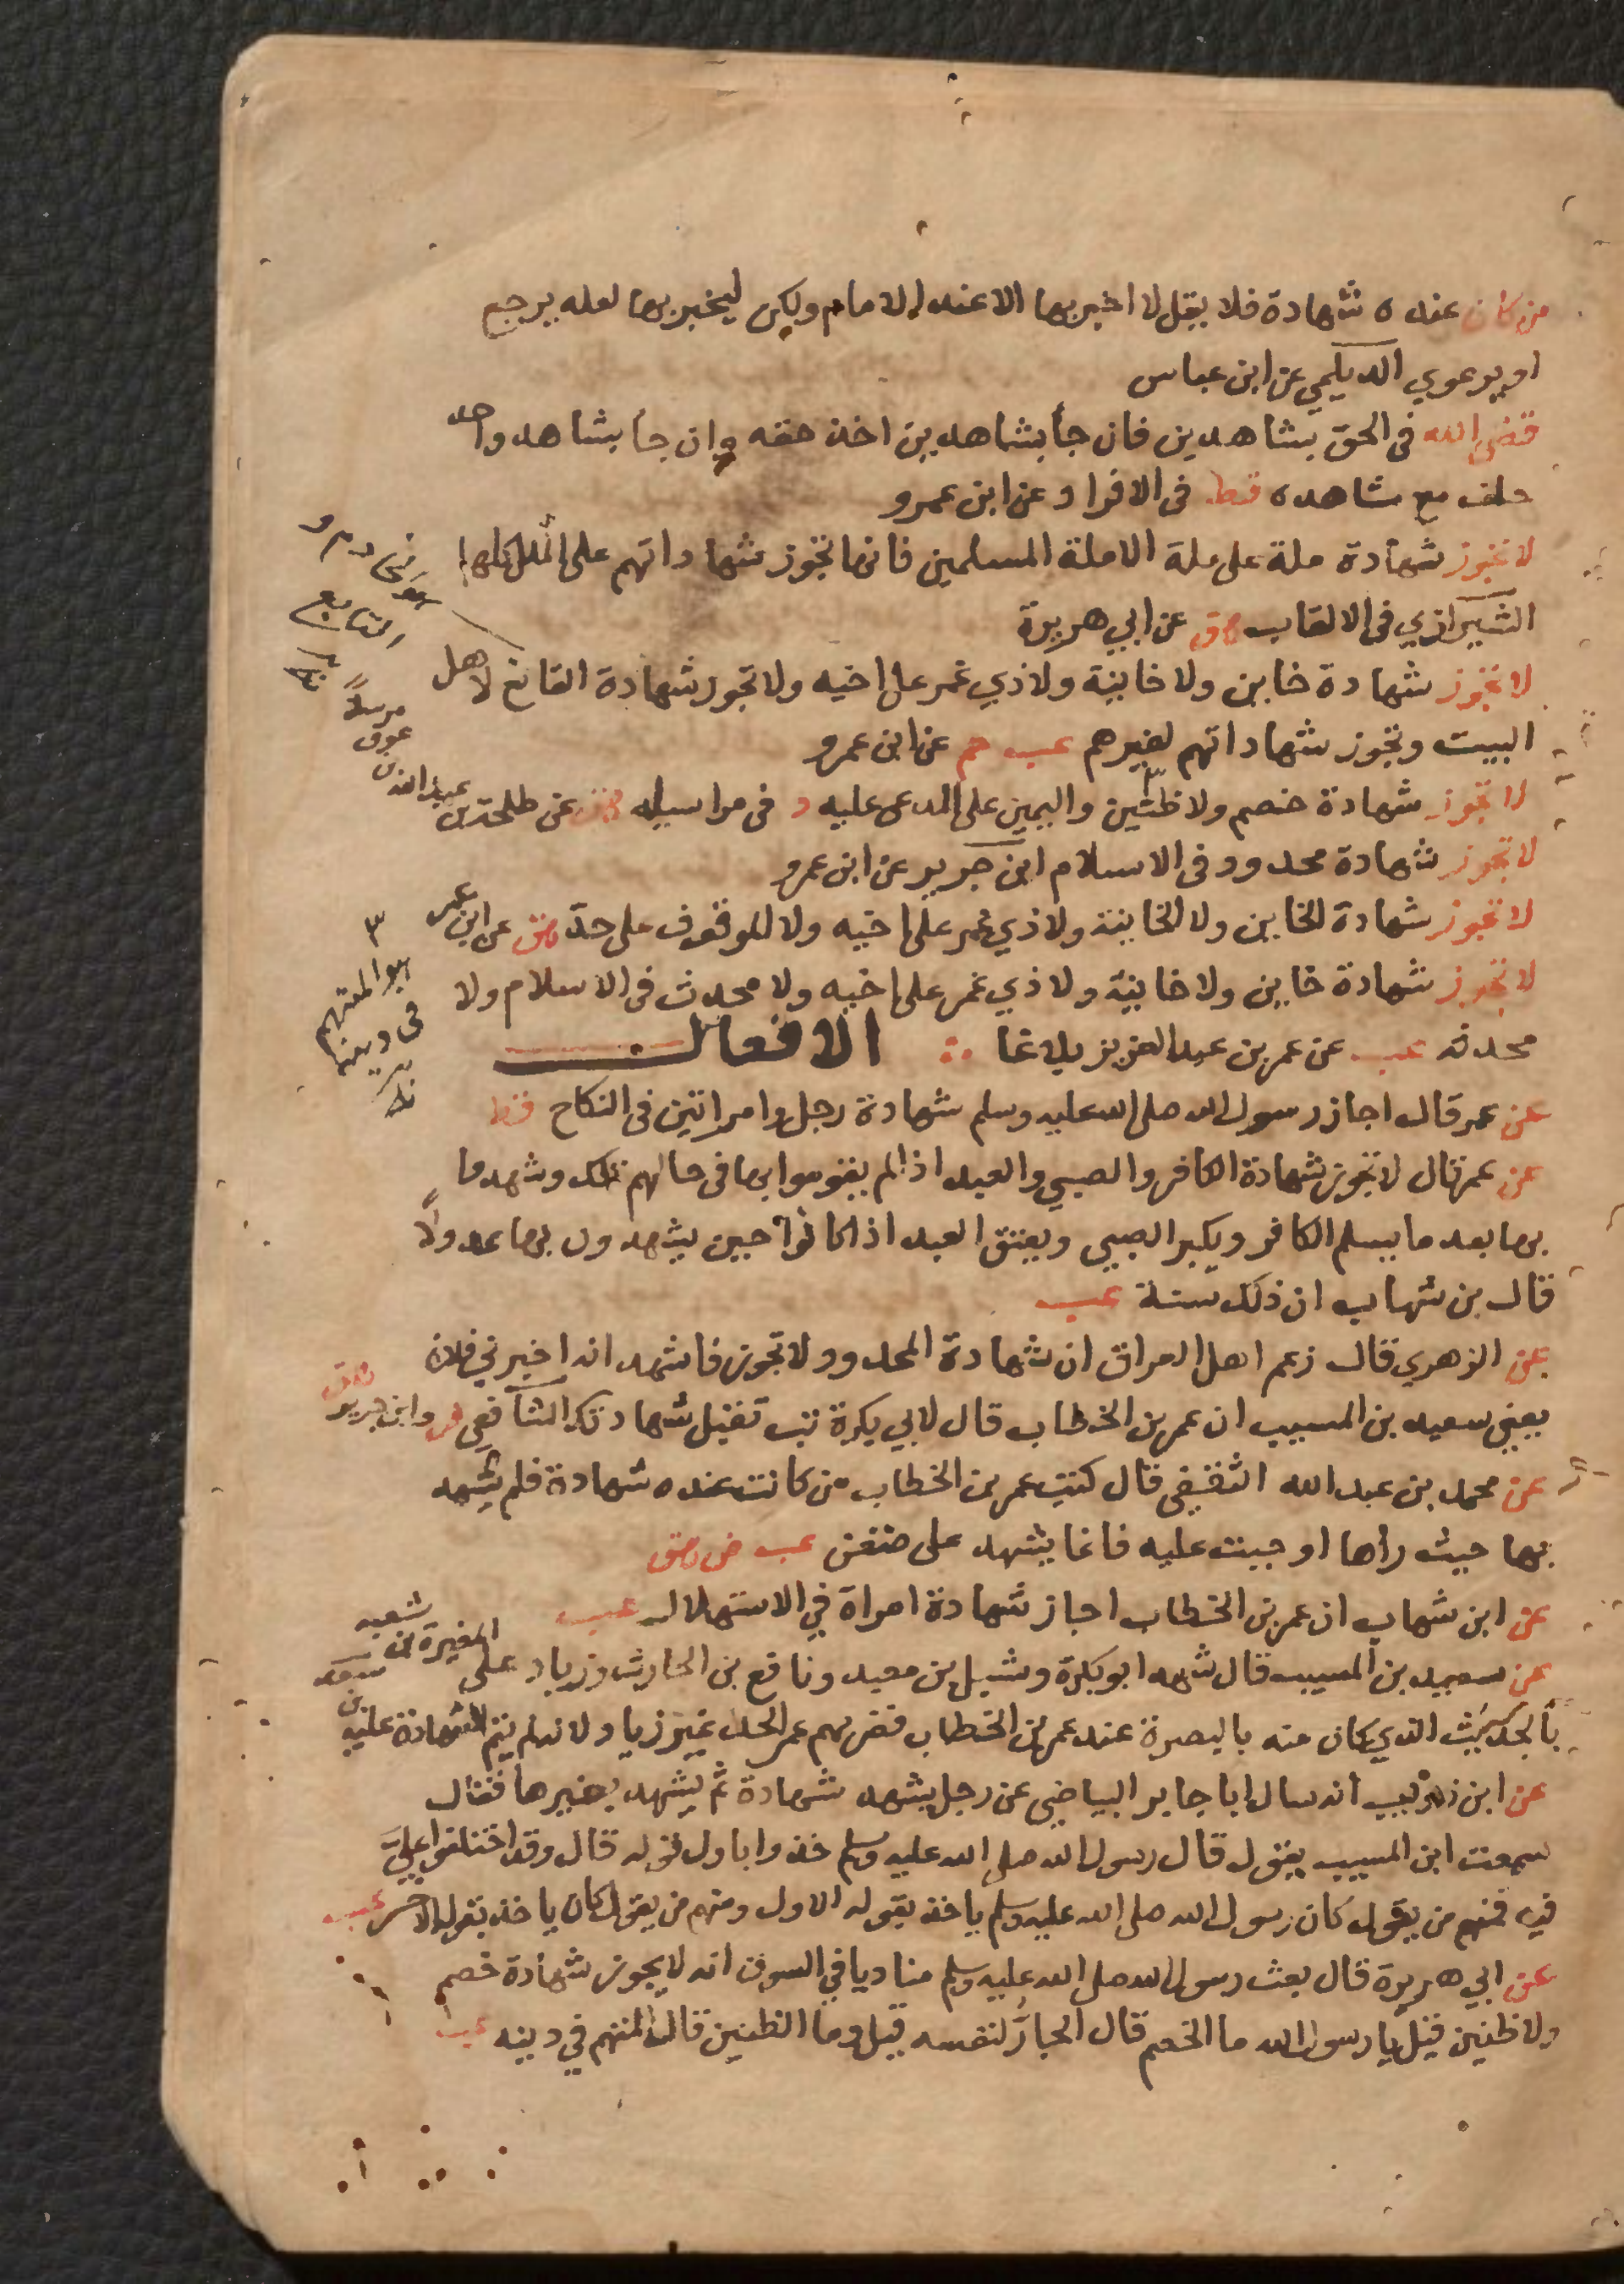 من كان عنده شهادة فلا يقل لا اخبر بها الا عند الامام ولكن ليخبر بها لعله يرجع
او يرعوي الديلمي عن ابن عباس
قضى الله فى الحق بشاهدين فان جأ بشاهدين اخذ حقه وان جأ بشاهد واحد
حلف مع شاهده قط فى الافراد عن ابن عمرو
لا تجوز شهادة ملة على ملة الا ملة المسلمين فانها تجوز شهاداتهم على الملل كلها
الشيرازي فى الالقاب هق عن ابي هريرة
لا تجوز شهادة خاين ولا خاينة ولا ذي غمر على اخيه ولا تجوز شهادة القانع لاهل
البيت وتجوز شهاداتهم لغيرهم عب حم عن ابن عمرو
لا تجوز شهادة خصم ولا ظنين واليمين على المدعى عليه د فى مراسيله هق عن طلحة بن عبد الله بن عوف مرسلاً
لا تجوز شهادة محدود فى الاسلام ابن جرير عن ابن عمرو
لا تجوز شهادة الخاين ولا الخاينة ولا ذي غمر على اخيه ولا الموقوف على حد هق عن ابن عمر
لا تجوز شهادة خاين ولا خاينة ولا ذي غمر على اخيه ولا محدث فى الاسلام ولا
محدثه عب عن عمر بن عبد العزيز بلاغا الافعال
هو المتهم
فى دينه
عن عمر قال اجاز رسول الله صلى الله عليه وسلم شهادة رجل وامراتين فى النكاح قط
عن عمر قال لا تجوز شهادة الكافر والصبي والعبد اذا لم يقوموا بها فى حالهم تلك وشهدوا
بها بعد ما يسلم الكافر ويكبر الصبي ويعتق العبد اذا كانوا حين يشهدون بها عدولاً
قال بن شهاب ان ذلك سنة عب
عن الزهري قال زعم اهل العراق ان شهادة المحدود لا تجوز فاشهد انه اخبرني فلان
يعني سعيد بن المسيب ان عمر بن الخطاب قال لابي بكرة تب تقبل شهادتك الشافعي ص وابن جرير هق
عن محمد بن عبد الله الثقفي قال كتب عمر بن الخطاب من كانت عنده شهادة فلم يشهد
بها حيث رأها او حيث عليه فانما يشهد على ضغن عب ص هق
عن ابن شهاب ان عمر بن الخطاب اجاز شهادة امراة في الاستهلال عب
عن سعيد بن المسيب قال شهد ابو بكرة وشبل بن معبد ونافع بن الحارث وزياد على المغيرة بن شعبه
بالحديث الذي كان منه بالبصرة عند عمر بن الخطاب فضربهم عمر الحد غير زياد لانه لم يتم الشهادة عليه
عن ابن ذويب انه سال ابا جابر البياضي عن رجل يشهد شهادة ثم يشهد بغيرها فقال
سمعت ابن المسيب يقول قال رسول الله صلى الله عليه وسلم خذوا باول قوله قال وقد اختلفوا عليَّ
فيه فمنهم من يقول كان رسول الله صلى الله عليه وسلم ياخذ بقوله الاول ومنهم من يقول كان ياخذ بقوله الاخر عب
عن ابي هريرة قال بعث رسول الله صلى الله عليه وسلم مناديا في السوق انه لا يجوز شهادة خصم
ولا ظنين قيل يا رسول الله ما الخصم قال الجارُّ لنفسه قيل وما الظنين قال المتهم في دينه عب